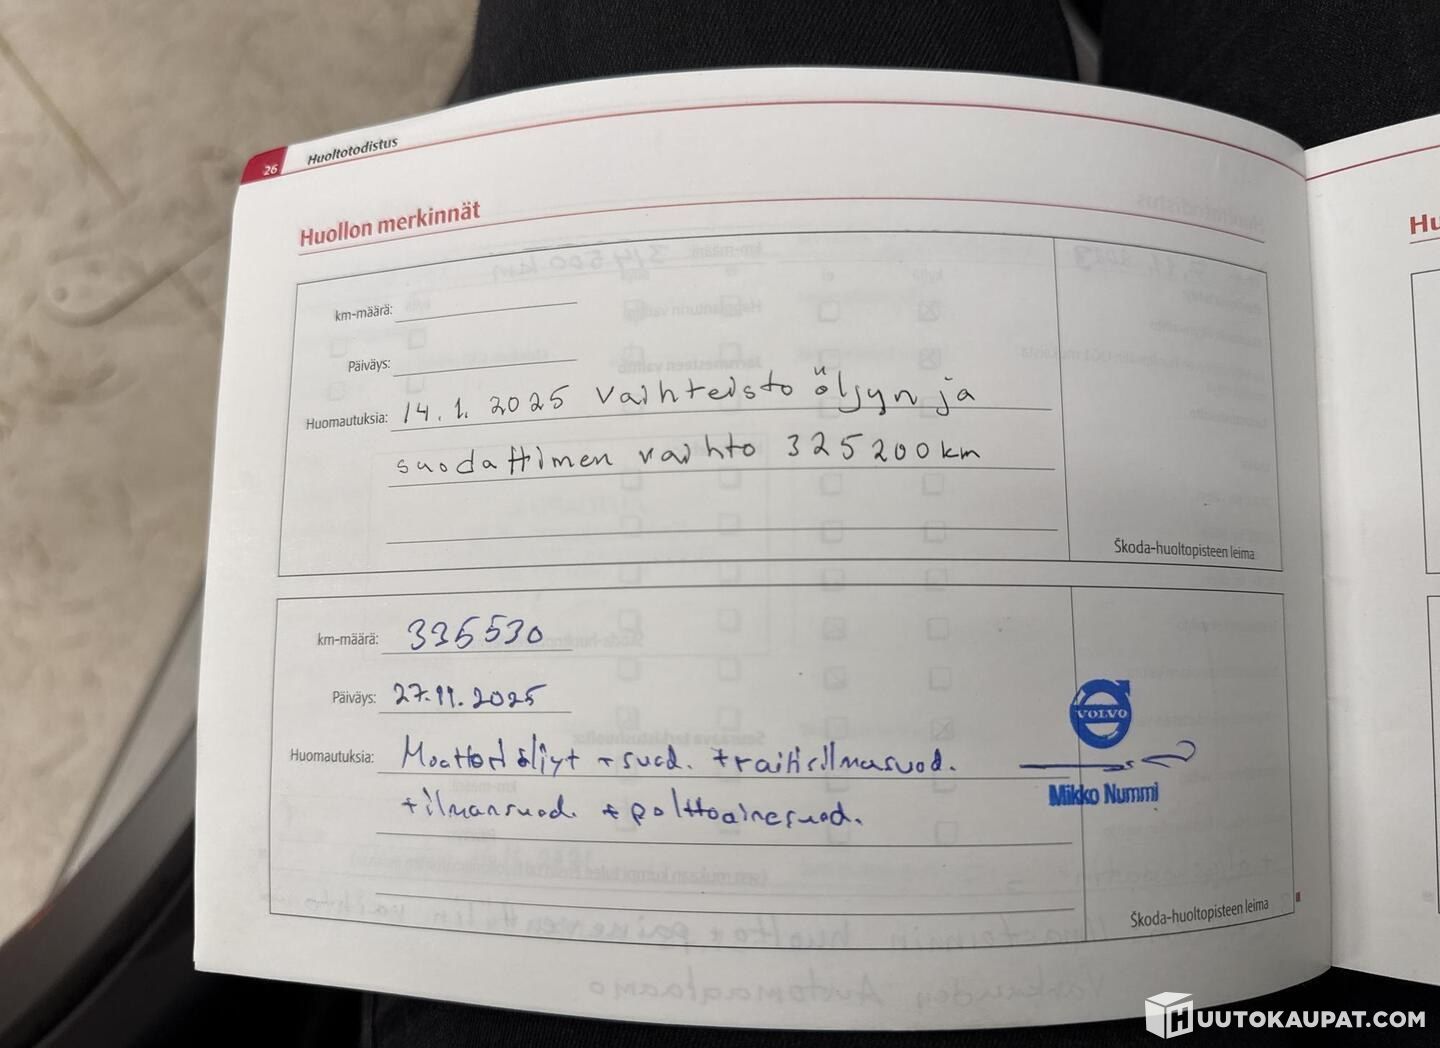 26 Huoltotodistus
Huollon merkinnät
km-määrä:
Päiväys:
Huomautuksia: 14.1.2025 Vaihteisto öljyn ja
suodattimen vaihto 325200km
Škoda-huoltopisteen leima
km-määrä: 335530
Päiväys: 27.11.2025
Huomautuksia: Moottoriöljyt + suod. + raitisilmasuod.
+ ilmansuod. + polttoainesuod.
VOLVO
Mikko Nummi
Škoda-huoltopisteen leima
Hu
HUUTOKAUPAT.COM